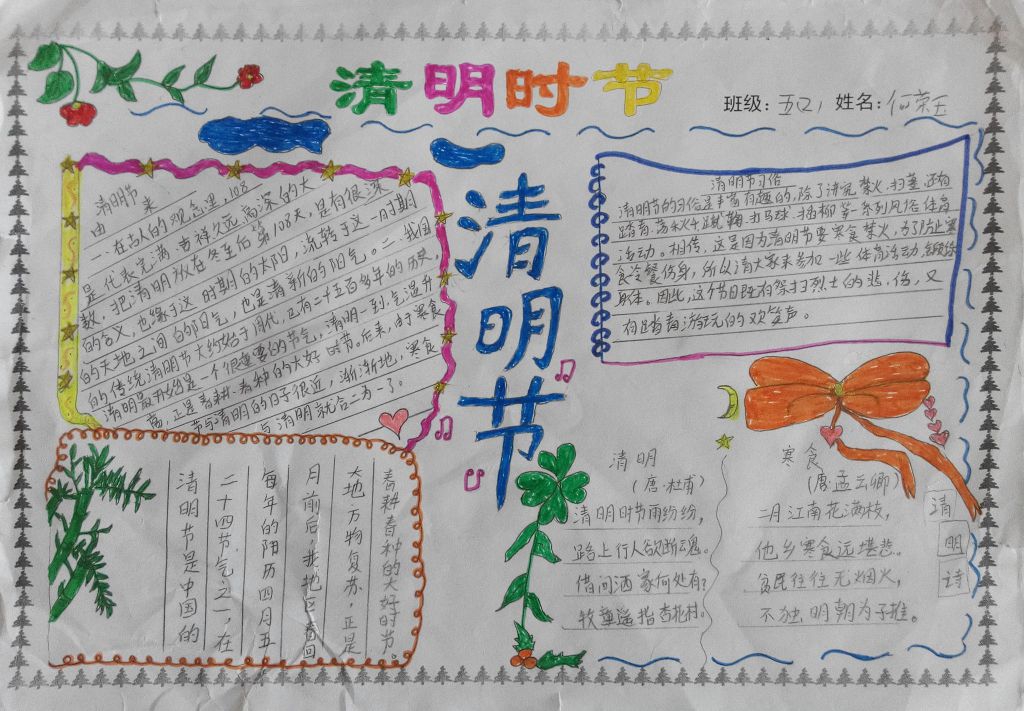 清明时节
班级：五（2） 姓名：何荣玉
清明节
清明节来
由 一 在古人的观念里，108
是代表完满、吉祥、久远、高深的大
数，把清明放在冬至后第108天，是有很深
的含义，也缘于这一时期的太阳，流转于这一时期
的天地之间的阳气，也是清新的阳气。二、我国
的传统清明节大约始于周代，已有二千五百多年的历史，
清明最开始是一个很重要的节气，清明一到，气温升
高，正是春耕春种的大好时节。后来，由于寒食
节与清明的日子很近，渐渐地，寒食
与清明就合二为一了。
清明节习俗
清明节的习俗是丰富有趣的，除了讲究禁火、扫墓，还有
踏青、荡秋千、蹴鞠、打马球、插柳等一系列风俗体育
活动。相传，这是因为清明节要寒食禁火，为了防止寒
食冷餐伤身，所以清大家来参加一些体育活动，锻炼
身体。因此，这个节日既有祭扫烈士的悲伤，又
有踏青游玩的欢笑声。
清明节是中国的
二十四节气之一，在
每年的阳历四月五
月前后，我地区春回
大地，万物复苏，正是
春耕春种的大好时节。
清明
（唐·杜甫）
清明时节雨纷纷，
路上行人欲断魂。
借问酒家何处有？
牧童遥指杏花村。
寒食
（唐·孟云卿）
二月江南花满枝，
他乡寒食远堪悲。
贫民往往无烟火，
不独明朝为子推。
清
明
诗